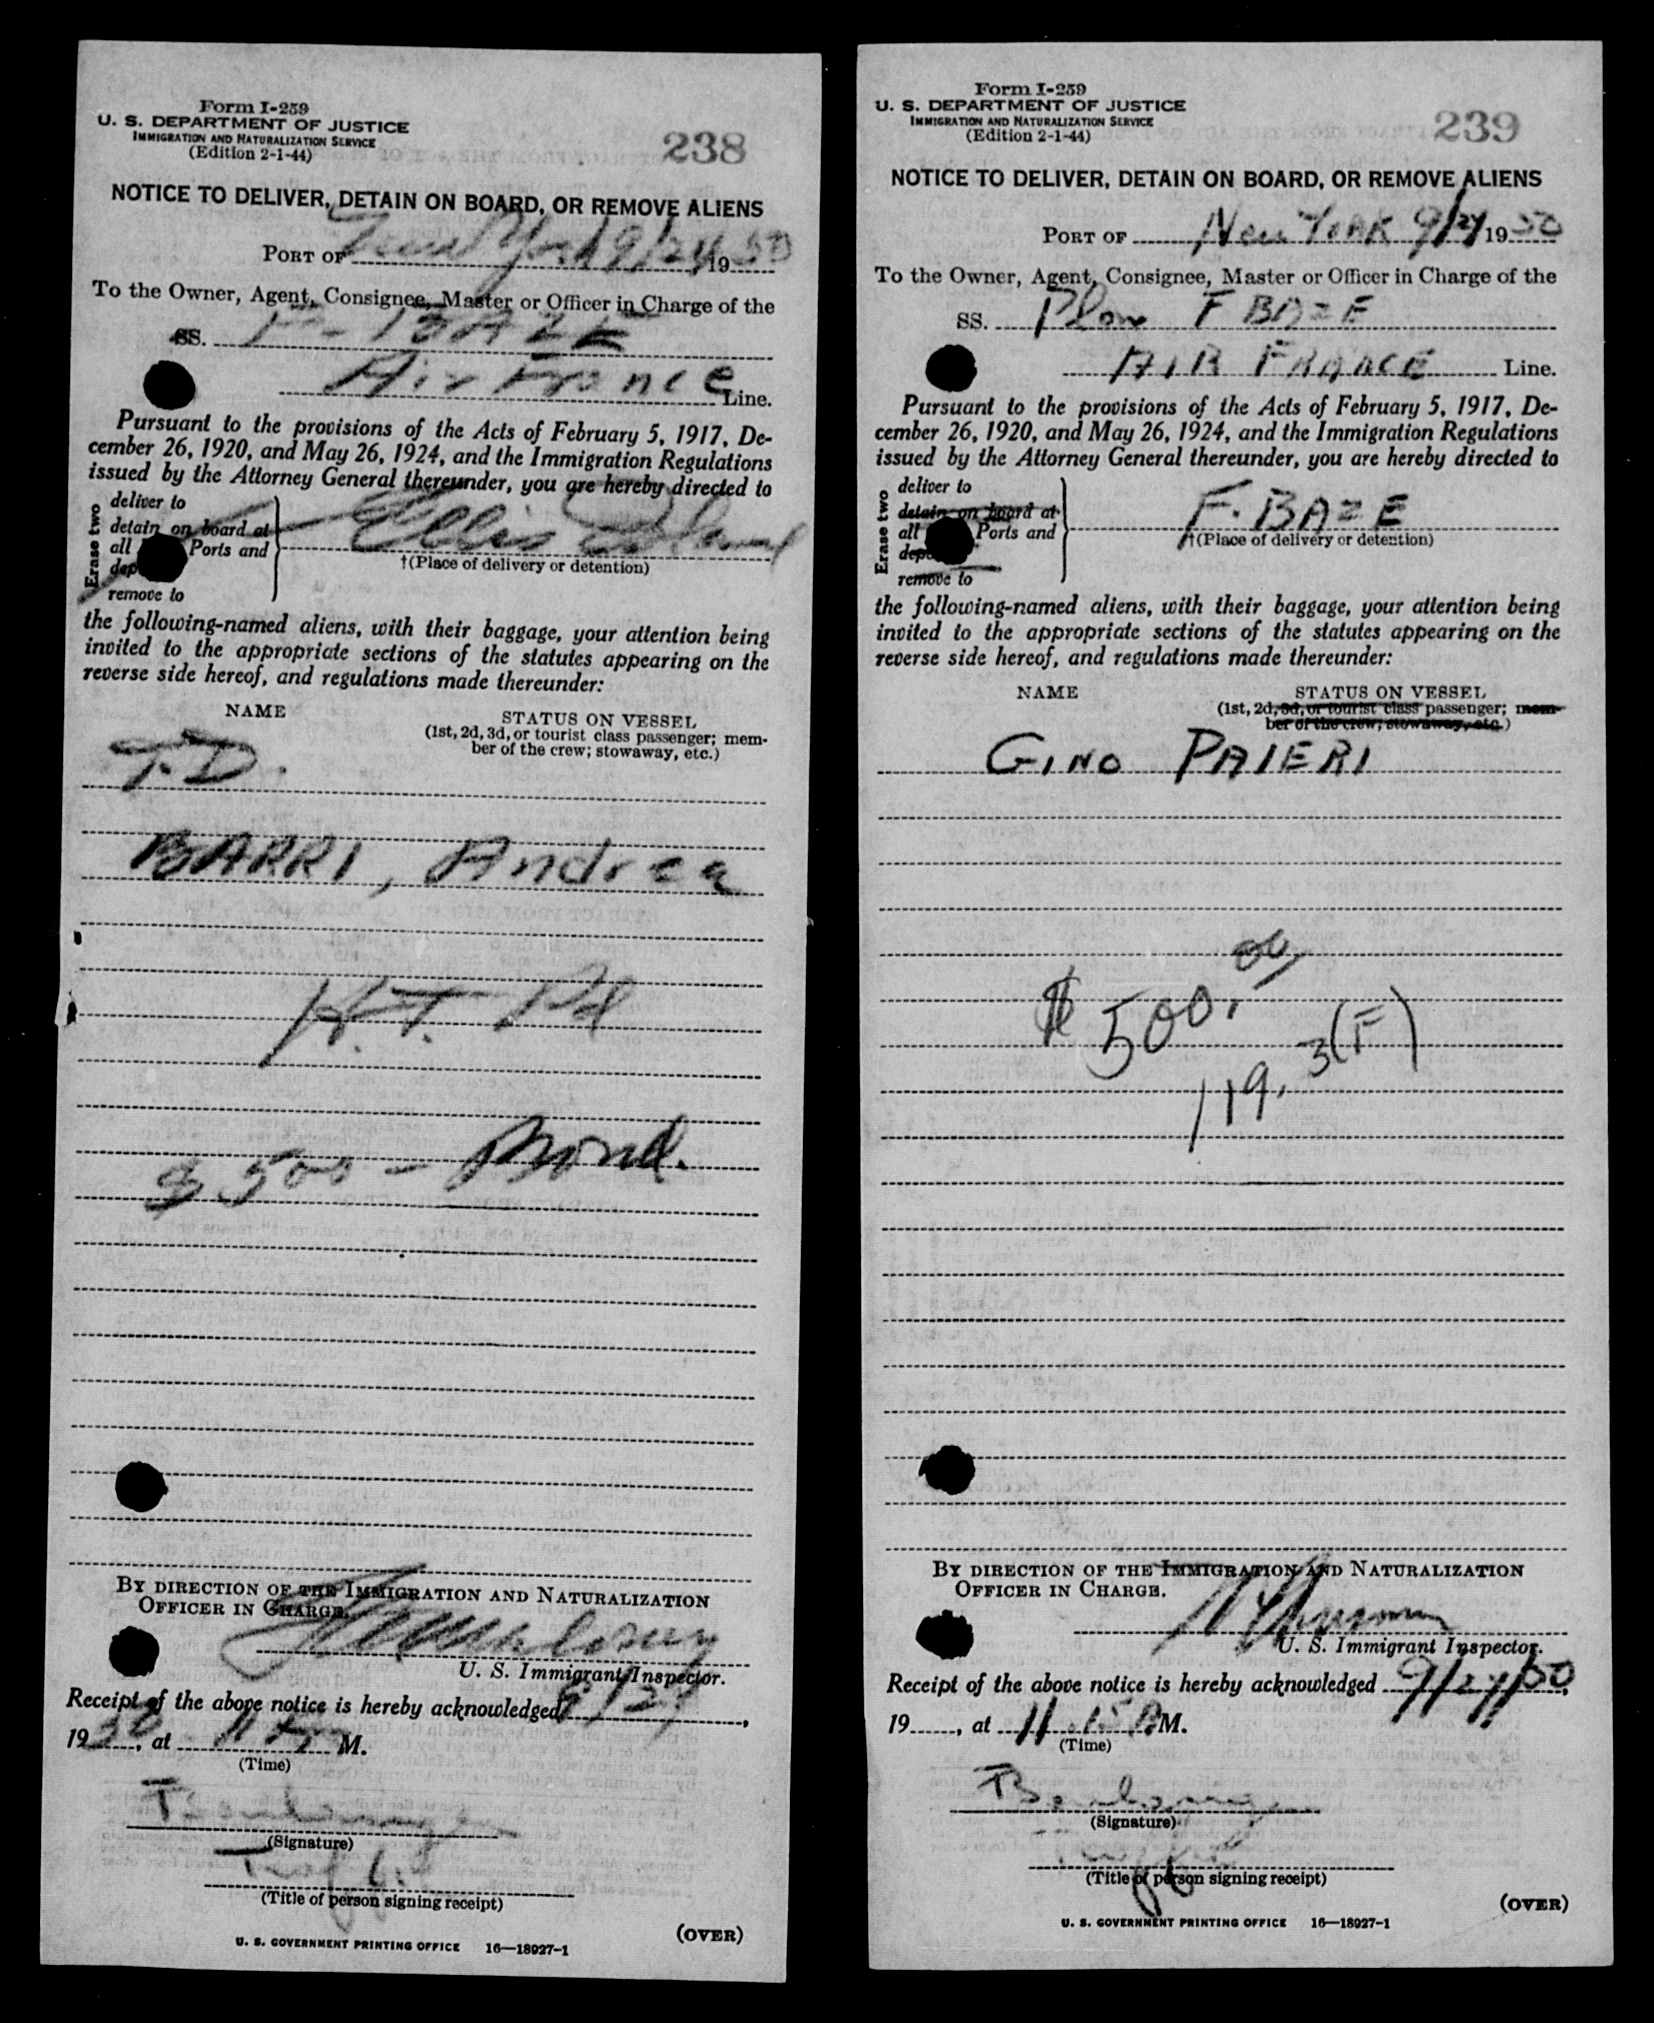 Form I-259
U. S. DEPARTMENT OF JUSTICE
IMMIGRATION AND NATURALIZATION SERVICE
(Edition 2-1-44)
238
NOTICE TO DELIVER, DETAIN ON BOARD, OR REMOVE ALIENS
PORT OF New York 9/24 1950
To the Owner, Agent, Consignee, Master or Officer in Charge of the
SS. F-BAZE
Air France Line.
Pursuant to the provisions of the Acts of February 5, 1917, De-
cember 26, 1920, and May 26, 1924, and the Immigration Regulations
issued by the Attorney General thereunder, you are hereby directed to
Erase two
deliver to
detain on board at
all Ports and
dep
remove to
Ellis Island
†(Place of delivery or detention)
the following-named aliens, with their baggage, your attention being
invited to the appropriate sections of the statutes appearing on the
reverse side hereof, and regulations made thereunder:
NAME
STATUS ON VESSEL
(1st, 2d, 3d, or tourist class passenger; mem-
ber of the crew; stowaway, etc.)
T.D.
BARRI, Andrea
H.T. Pd
$500- Bond.
BY DIRECTION OF THE IMMIGRATION AND NATURALIZATION
OFFICER IN CHARGE.
U. S. Immigrant Inspector.
Receipt of the above notice is hereby acknowledged
1950, at 11 M.
(Time)
(Signature)
(Title of person signing receipt)
U. S. GOVERNMENT PRINTING OFFICE 16—18927-1
(OVER)
Form I-259
U. S. DEPARTMENT OF JUSTICE
IMMIGRATION AND NATURALIZATION SERVICE
(Edition 2-1-44)
239
NOTICE TO DELIVER, DETAIN ON BOARD, OR REMOVE ALIENS
PORT OF New York 9/24 1950
To the Owner, Agent, Consignee, Master or Officer in Charge of the
SS. F BAZE
AIR FRANCE Line.
Pursuant to the provisions of the Acts of February 5, 1917, De-
cember 26, 1920, and May 26, 1924, and the Immigration Regulations
issued by the Attorney General thereunder, you are hereby directed to
Erase two
deliver to
detain on board at
all Ports and
dep
remove to
F. BAZE
†(Place of delivery or detention)
the following-named aliens, with their baggage, your attention being
invited to the appropriate sections of the statutes appearing on the
reverse side hereof, and regulations made thereunder:
NAME
STATUS ON VESSEL
(1st, 2d, 3d, or tourist class passenger; mem-
ber of the crew; stowaway, etc.)
GINO PAIERI
$500.00
119.3(F)
BY DIRECTION OF THE IMMIGRATION AND NATURALIZATION
OFFICER IN CHARGE.
U. S. Immigrant Inspector.
Receipt of the above notice is hereby acknowledged 9/24/50,
19......, at 11.15 A M.
(Time)
(Signature)
(Title of person signing receipt)
U. S. GOVERNMENT PRINTING OFFICE 16—18927-1
(OVER)